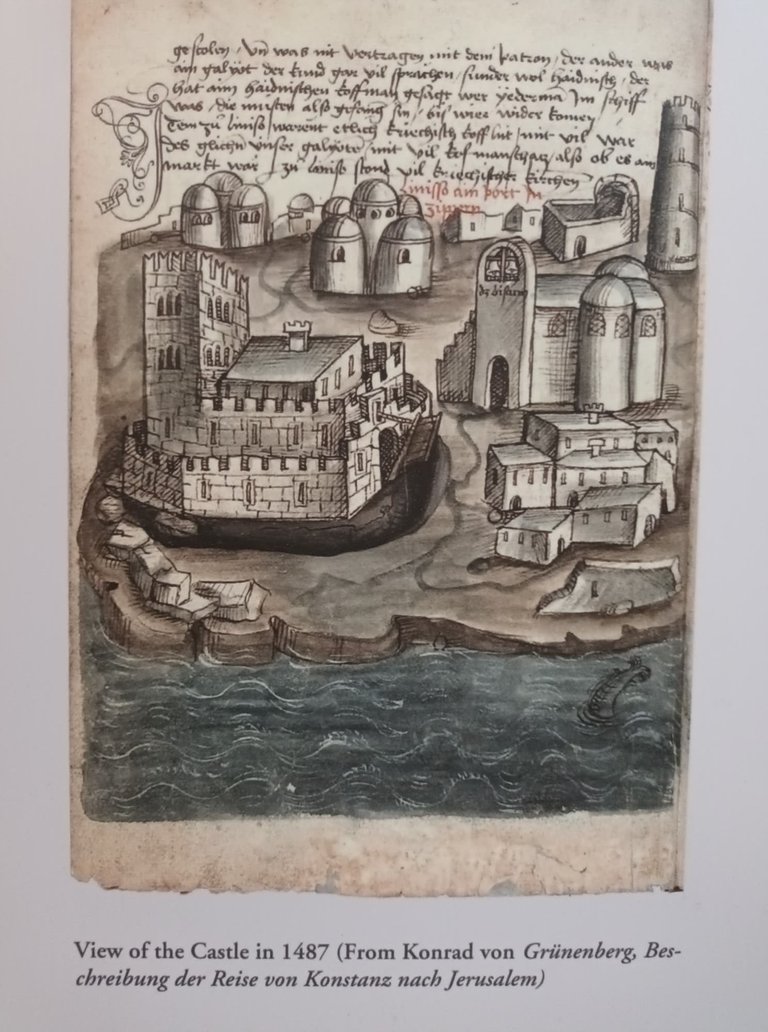 gestolen / vn was nit vertragen mit dem patron / der ander was
am galyot der kund gar vil sprachen / sunder wol haidnisch / der
hat aim haidnischen koffman gesagt wer yederma Im schiff
was / die musten also gefang sin / bis wier wider komen
Item zu limiso warent etlich kriechisch kofflüt / mit vil war
des glichn vnser galyote / mit vil kofmanschatz / also ob es am
markt wär / zu limiso stond vil kriechischer kirchen
limisso ain port In
zippern
View of the Castle in 1487 (From Konrad von Grünenberg, Bes-
chreibung der Reise von Konstanz nach Jerusalem)